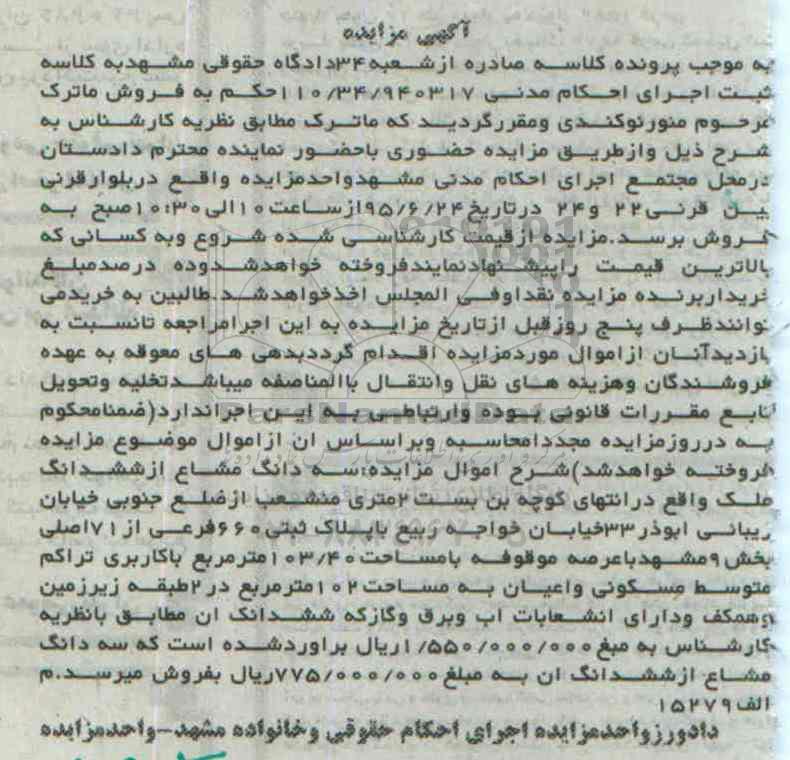 آگهی مزایده
به موجب پرونده کلاسه صادره ازشعبه۳۴دادگاه حقوقی مشهدبه کلاسه
ثبت اجرای احکام مدنی ۱۱۰/۳۴/۹۴۰۳۱۷حکم به فروش ماترک
مرحوم منورنوکندی ومقررگردید که ماترک مطابق نظریه کارشناس به
شرح ذیل وازطریق مزایده حضوری باحضور نماینده محترم دادستان
درمحل مجتمع اجرای احکام مدنی مشهدواحدمزایده واقع دربلوارقرنی
بین قرنی۲۲ و۲۴ درتاریخ۹۵/۶/۲۴ازساعت۱۰الی۱۰:۳۰صبح به
فروش برسد.مزایده ازقیمت کارشناسی شده شروع وبه کسانی که
بالاترین قیمت راپیشنهادنمایندفروخته خواهدشدوده درصدمبلغ
خریداربرنده مزایده نقداوفی المجلس اخذخواهدشد.طالبین به خریدمی
توانندظرف پنج روزقبل ازتاریخ مزایده به این اجرامراجعه تانسبت به
بازدیدآنان ازاموال موردمزایده اقدام گرددبدهی های معوقه به عهده
فروشندگان وهزینه های نقل وانتقال باالمناصفه میباشدتخلیه وتحویل
تابع مقررات قانونی بوده وارتباطی به این اجراندارد(ضمنامحکوم
به درروزمزایده مجددامحاسبه وبراساس ان ازاموال موضوع مزایده
فروخته خواهدشد)شرح اموال مزایده:سه دانگ مشاع ازششدانگ
ملک واقع درانتهای کوچه بن بست ۲متری منشعب ازضلع جنوبی خیابان
زیبائی ابوذر۳۳خیابان خواجه ربیع باپلاک ثبتی۶۶۰فرعی از۷۱اصلی
بخش۹مشهدباعرصه موقوفه بامساحت۱۰۳/۴۰مترمربع باکاربری تراکم
متوسط مسکونی واعیان به مساحت۱۰۲مترمربع در۲طبقه زیرزمین
وهمکف ودارای انشعابات اب وبرق وگازکه ششدانک ان مطابق بانظریه
کارشناس به مبغ۱/۵۵۰/۰۰۰/۰۰۰ریال براوردشده است که سه دانگ
مشاع ازششدانگ ان به مبلغ۷۷۵/۰۰۰/۰۰۰ریال بفروش میرسد.م
الف۱۵۲۷۹
دادورزواحدمزایده اجرای احکام حقوقی وخانواده مشهد-واحدمزایده